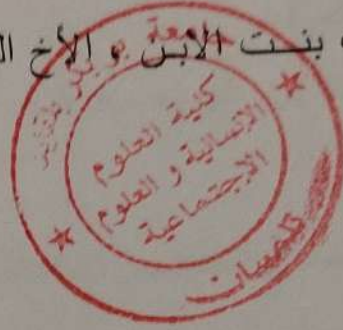 بنت الابن و الأخ
جامعة
كلية العلوم
الإنسانية و العلوم
الاجتماعية
تلمسان